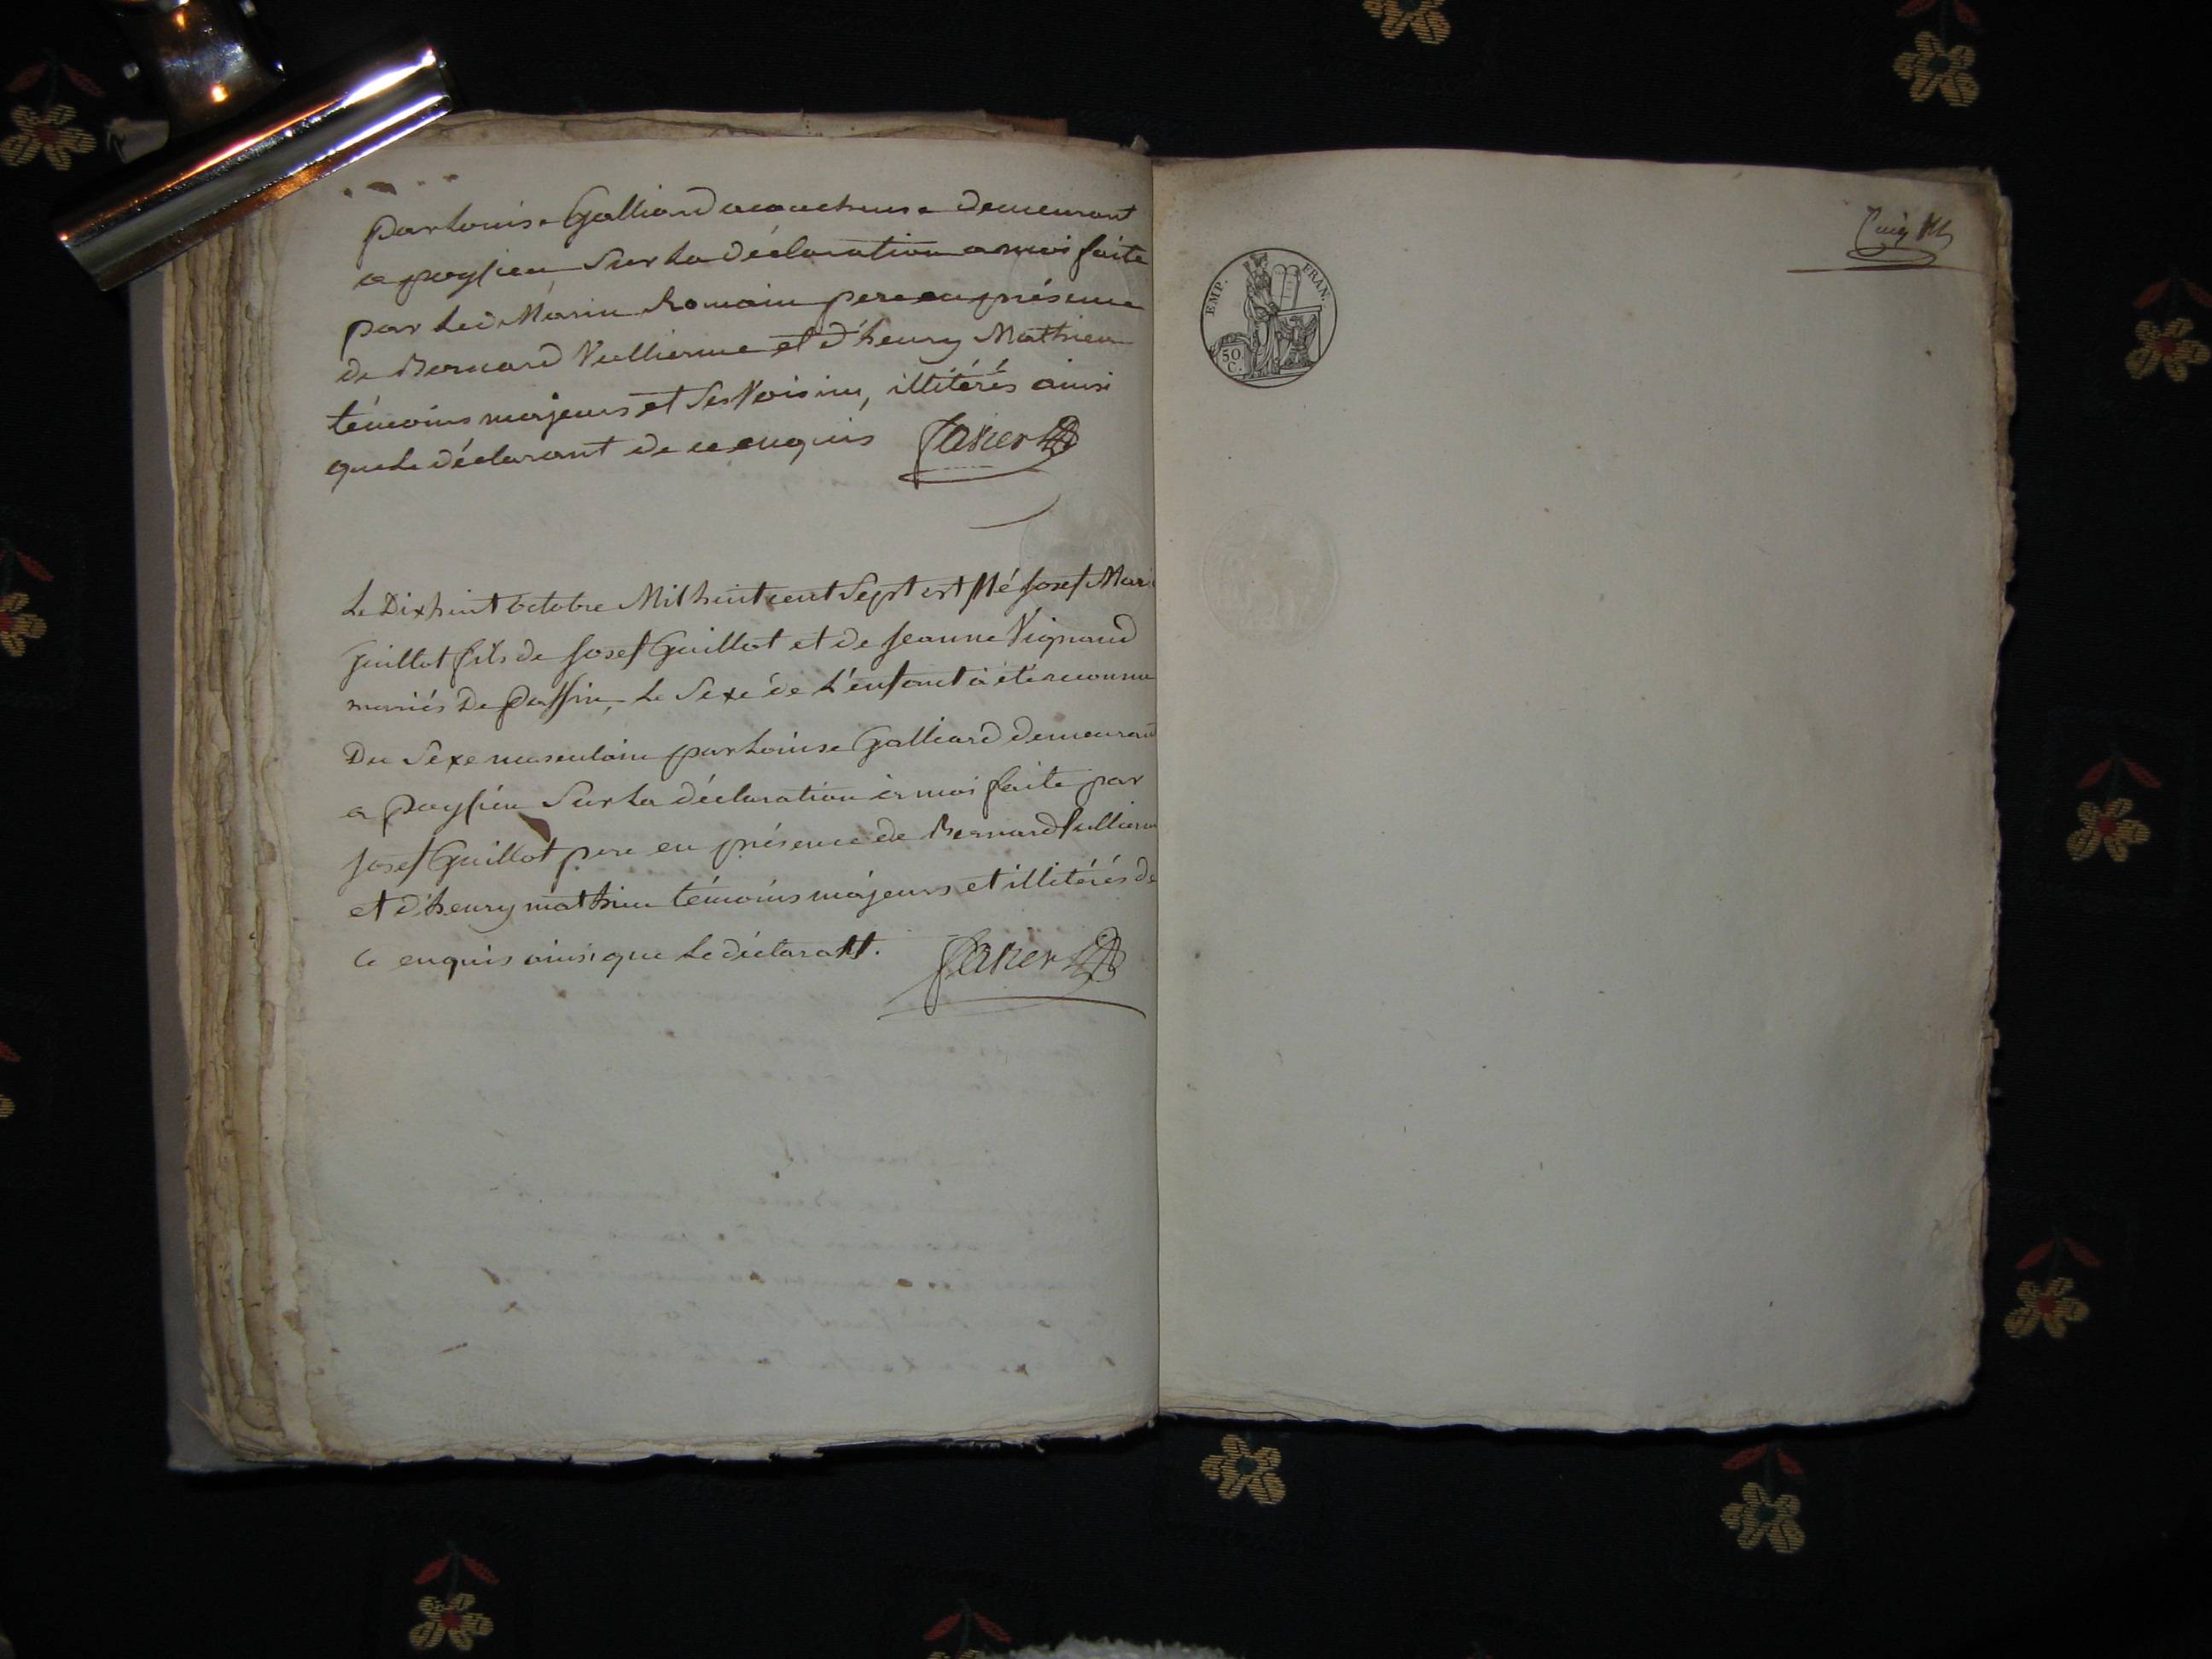 par Louise Galliard acoucheuse demeurant
a poysieu Sur La déclaration a moi faite
par Led Marin Romain pere en présence
de Bernard Vullierme et d'henry Mathieu
témoins majeurs et Ses Voisins, illitérés ainsi
que Le déclarant de ce enquis Janer
Le Dixhuit octobre Mil huit cent Sept est Né Josef Mari
Guillot fils de Josef Guillot et de Jeanne Vignaud
mariés De Passin, Le Sexe de L'enfant à été reconnu
Du Sexe masculain par Louise Galliard demeurant
a Poysieu Sur La déclaration à moi faite par
Josef Guillot pere en présence de Bernard Vullierm
et d'henry mathieu témoins majeurs et illitérés de
Ce enquis ainsi que Le déclarant. Janer
EMP. FRAN.
50.
C.